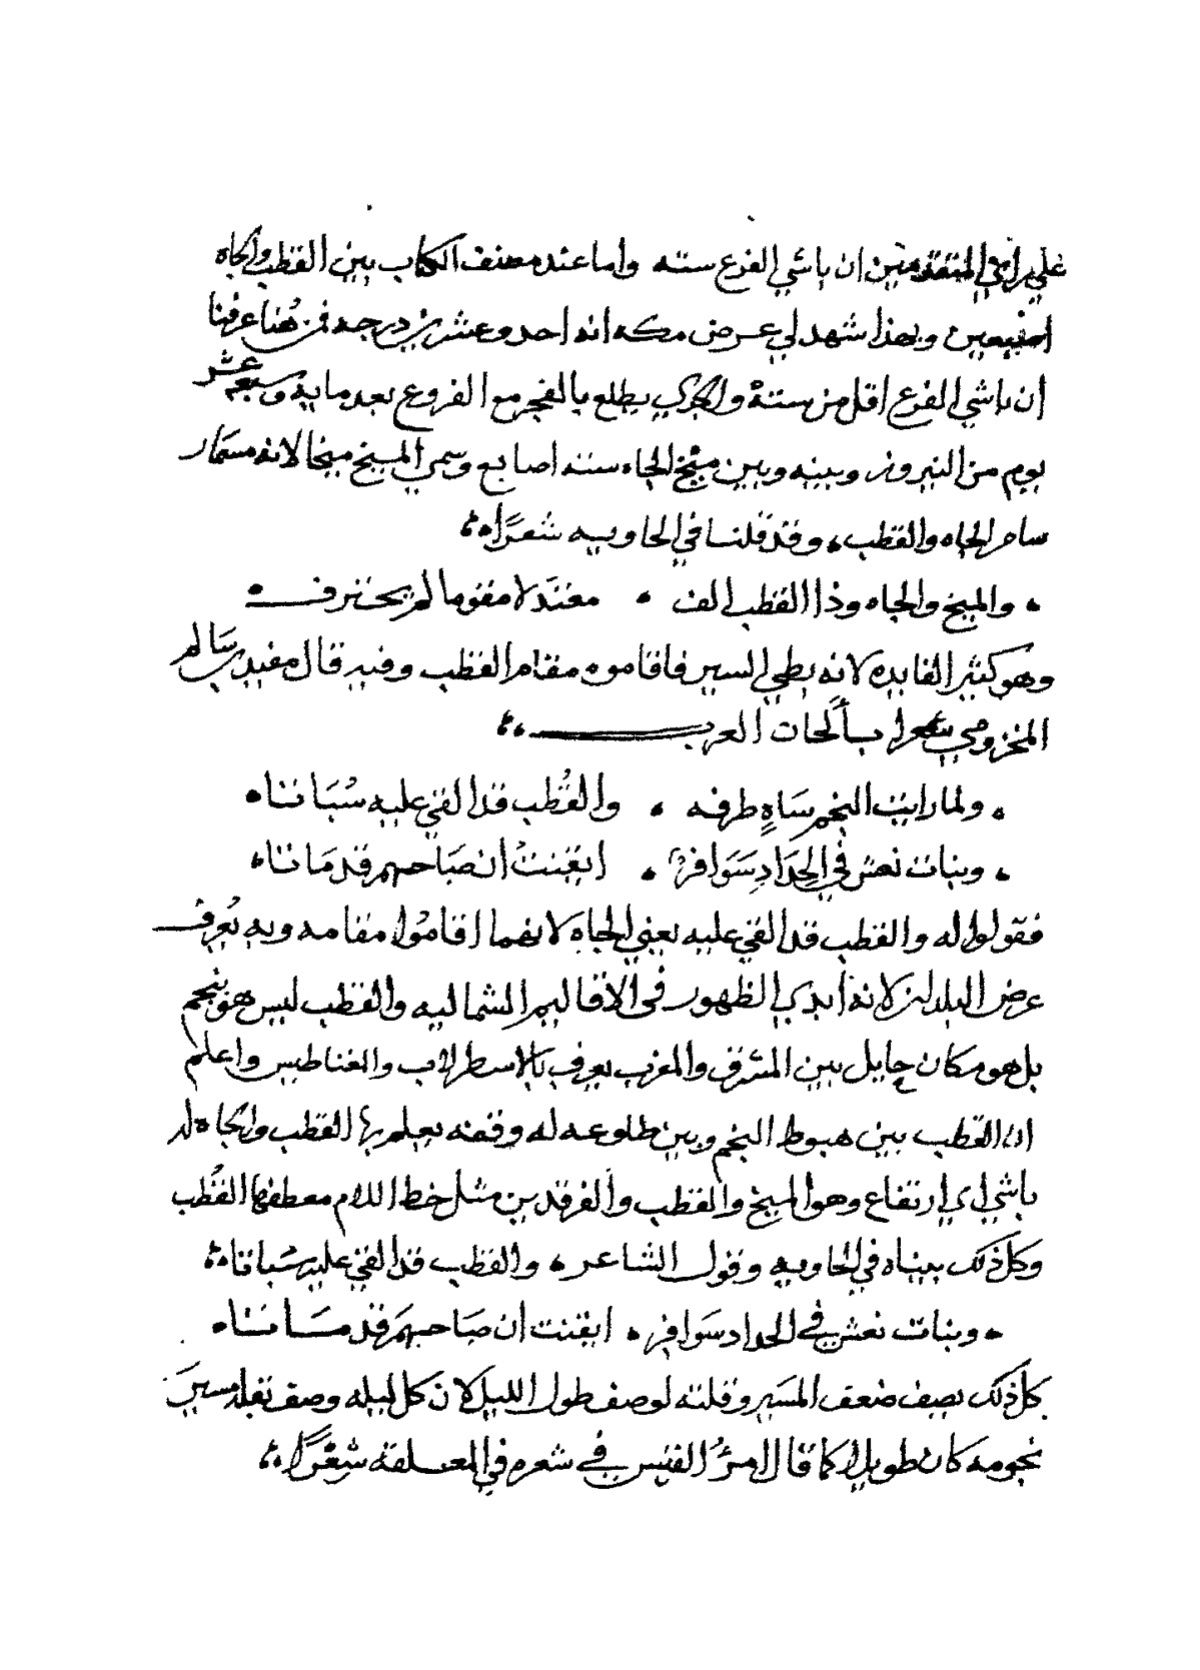 علي راي المتقدمين ان باشي الفرع سته واما عند مصنف الكتاب بين القطب والجاه
اصبعين وبهذا شهد لي عرض مكه انه احد وعشرين درجه فمن هُنا عرفنا
أن باشي الفرع اقل من ستهْ والجدي يطلع بالفجر مع الفروع بعد مايه وسبعه عشر
يوم من النيروز وبينه وبين ميخ الجاه سته اصابع وسمي الميخ ميخا لانه مسمار
سامر الجاه والقطب، وقد قلنا في الحاويه شعرًا،
، والميخ والجاه وذا القطب الف ، مفند لا مقوما لم ينحرف
وهو كثير الفايده لانه بطي السير فاقاموه مقام القطب وفيه قال مفيد سالم
المخزومي شعرا بألحان العرب
، ولما رايت النجم سَاهٍ طرفه ، والقُطب قد القي عليه سُبَاتا،
، وبنات نعش في الحِدَادِ سَوَافرٌ ، ايقنتُ ان صَبَاحهم قد مَاتا،
فقولوا له والقطب قد القي عليه يعني الجاه لانهما اقامُوا مقامه وبه يُعرف
عرض البلدان لانهُ ابدي الظهور فى الاقاليم الشماليه والقطب ليس هو نجم
بل هو مكان حايل بين المشرق والمغرب يعرف بالاسطرلاب والغناطيس واعلم
ان القطب بين هبوط النجم وبين طلوعه له وقفه يعلم بها القطب والجاه له
باشي اي ارتفاع وهو الميخ والقطب والفرقدين مثل خط اللام معطفها القُطب
وكل ذلك بيناه في الحاويه وقول الشاعر ، والقطب قد القي عليه سُباتا،
، وبنات نعش في الحداد سَوافر ، ايقنت ان صَبَاحهم قد مَاتا،
كل ذلك يصف ضعف المسَير وقلته لوصف طول الليل لان كل ليله وصف ثقله مسيرَ
نجومه كان طويلا كما قال امرُؤ القيس في شعره في المعلقه شِعْرًا،